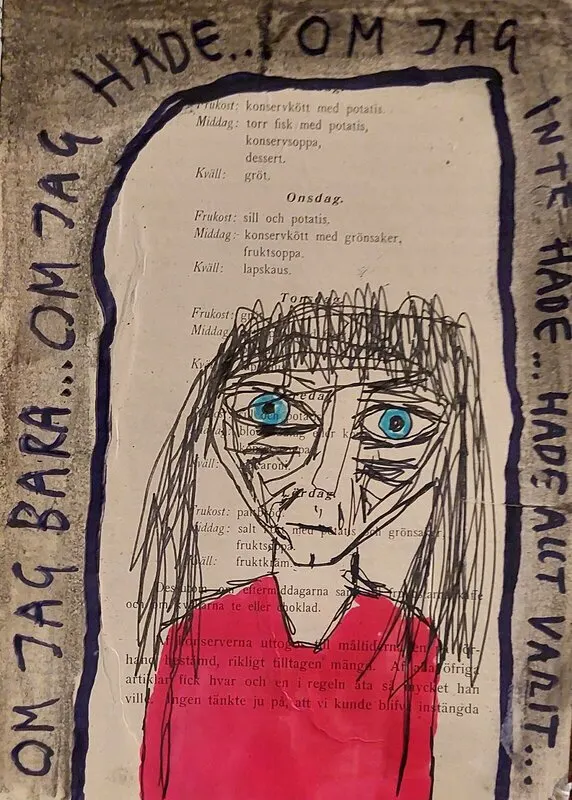 OM JAG BARA... OM JAG
HADE... OM JAG
INTE HADE... HADE ALLT VARIT...
Frukost: konservkött med potatis.
Middag: torr fisk med potatis,
konservsoppa,
dessert.
Kväll: gröt.
Onsdag.
Frukost: sill och potatis.
Middag: konservkött med grönsaker,
fruktsoppa.
Kväll: lapskaus.
Frukost:
Middag
Kväll:
Frukost:
Middag: salt kött med potatis och grönsaker,
fruktsoppa
Kväll: fruktkräm.
Dessutom eftermiddagarna
och om kvällarna te eller choklad.
Af konserverna uttogs till måltiderna en för-
hand bestämd, rikligt tilltagen mängd. Af alla öfriga
artiklar fick hvar och en i regeln äta så mycket han
ville. Ingen tänkte ju på, att vi kunde blifva instängda